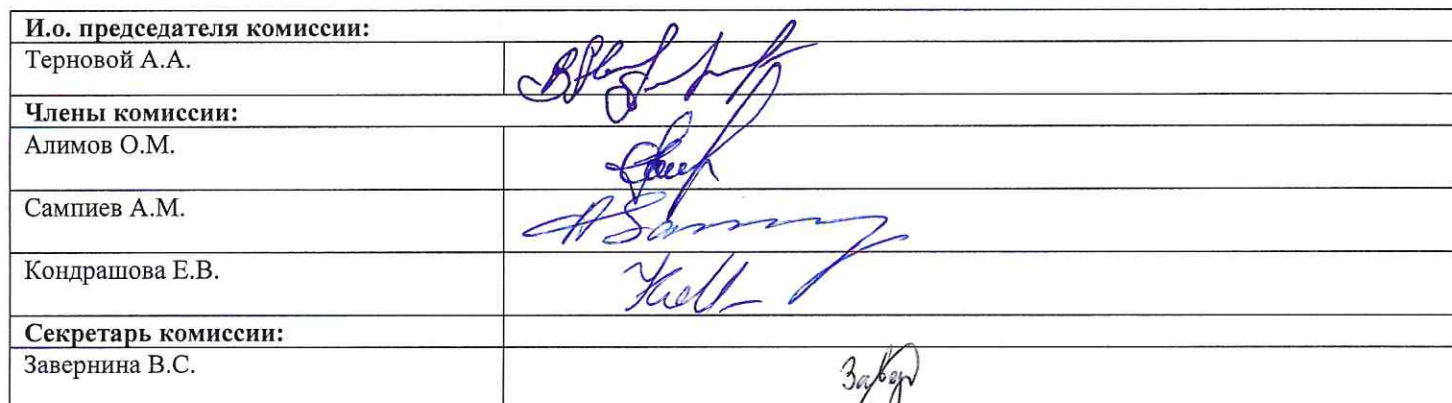 И.о. председателя комиссии:
Терновой А.А.
Члены комиссии:
Алимов О.М.
Сампиев А.М.
Кондрашова Е.В.
Секретарь комиссии:
Завернина В.С.